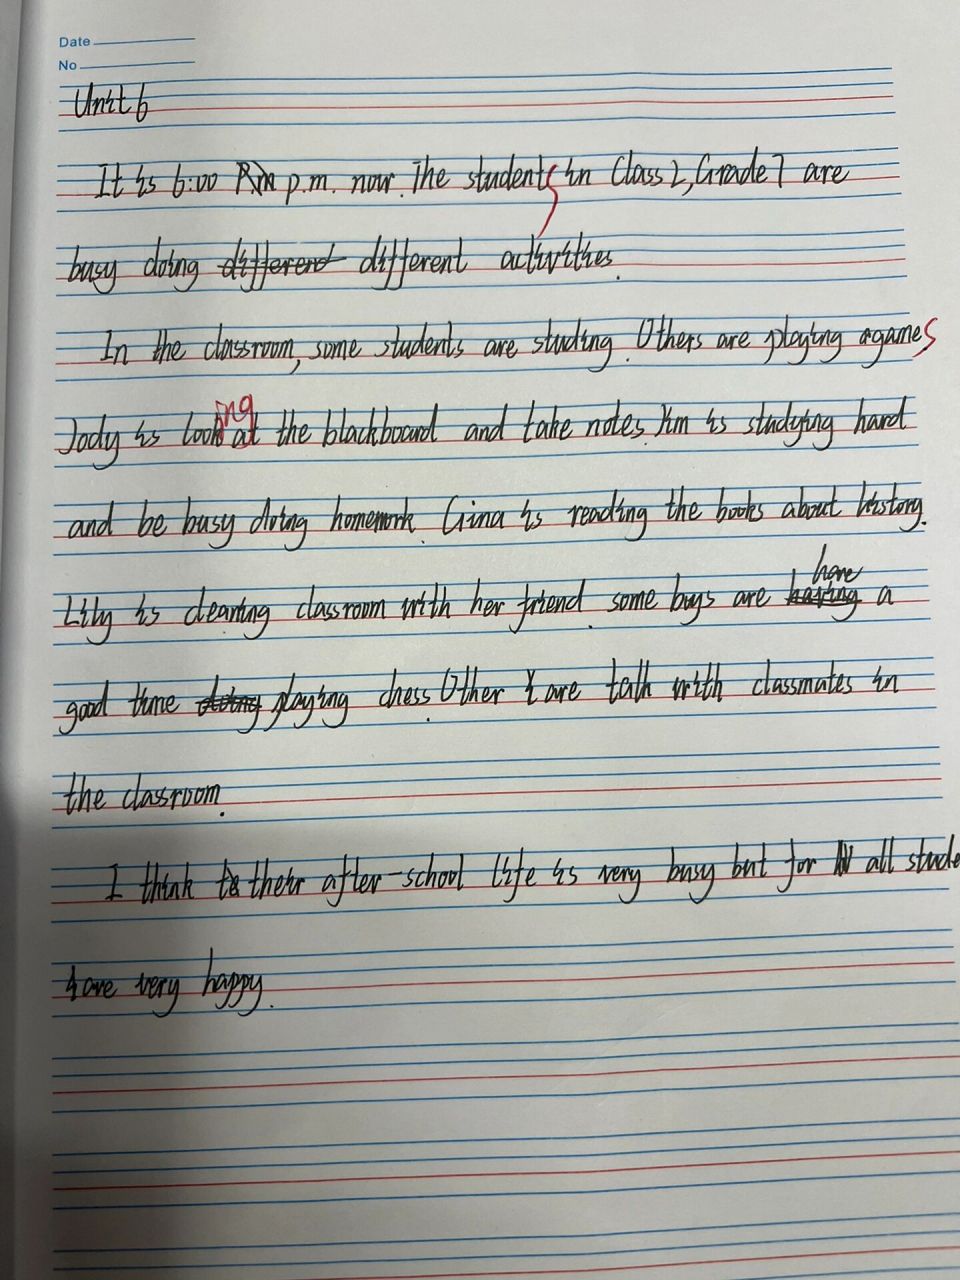 Date
No
Unit 6
It is 6:00 p.m. now. The students in Class 2, Grade 7 are
busy doing different different activities.
In the classroom, some students are studing. Others are playing games
Jody is looking at the blackboard and take notes. Kim is studying hard
and be busy doing homework. Gina is reading the books about history.
Lily is cleaning classroom with her friend. some boys are having have a
good time doing playing chess. Other are talk with classmates in
the classroom.
I think their after-school life is very busy but for all stude
are very happy.